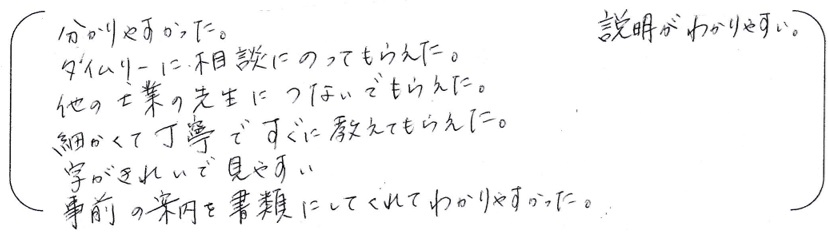 分かりやすかった。
説明がわかりやすい。
タイムリーに相談にのってもらえた。
他の士業の先生につないでもらえた。
細かくて丁寧ですぐに教えてもらえた。
字がきれいで見やすい
事前の案内を書類にしてくれてわかりやすかった。